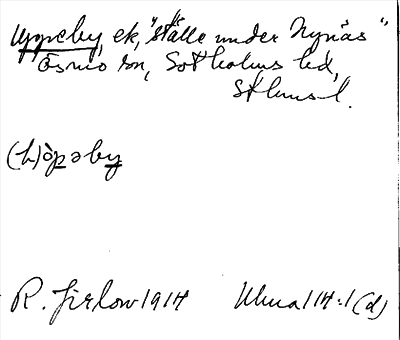 Yppeby, ek, "ställe under Nynäs"
Ösmo sn, Sotholms hd,
Sthms l.
(h)òpəby
R. Jirlow 1914 Ulma 114:1 (d)